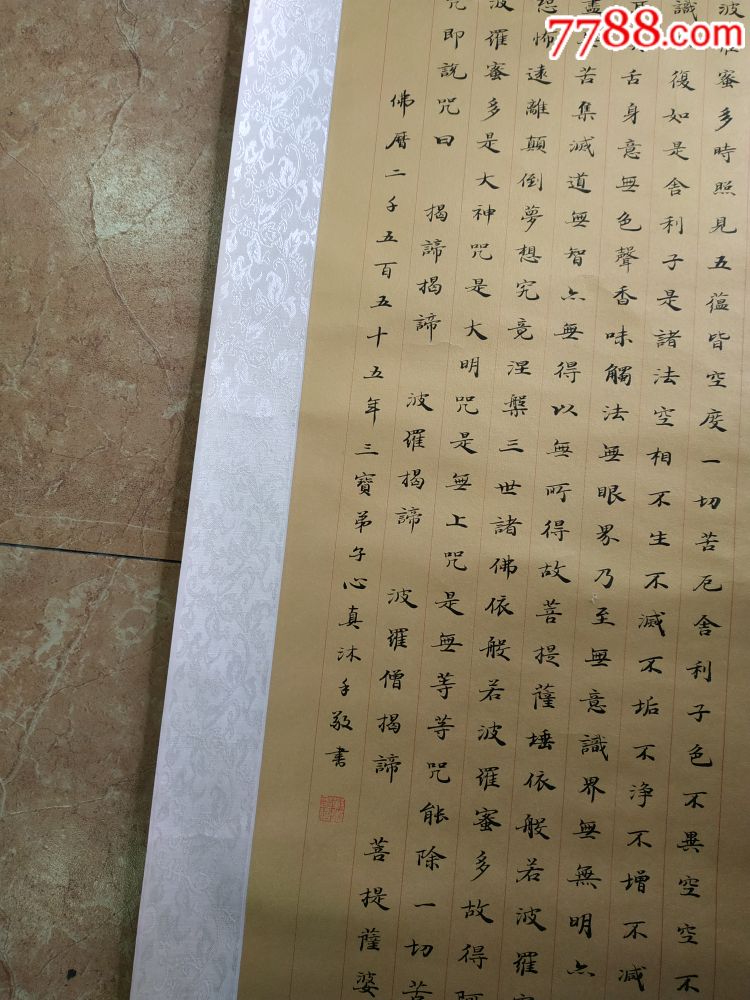 7788.com
波羅蜜多時照見五蘊皆空度一切苦厄舍利子色不異空空不
識復如是舍利子是諸法空相不生不滅不垢不浄不增不減
舌身意無色聲香味觸法無眼界乃至無意識界無無明亦
盡苦集滅道無智亦無得以無所得故菩提薩埵依般若波羅
怖遠離顛倒夢想究竟涅槃三世諸佛依般若波羅蜜多故得
波羅蜜多是大神咒是大明咒是無上咒是無等等咒能除一切苦
咒即說咒曰 揭諦揭諦 波羅揭諦 波羅僧揭諦 菩提薩婆
佛曆二千五百五十五年三寶弟子心真沐手敬書